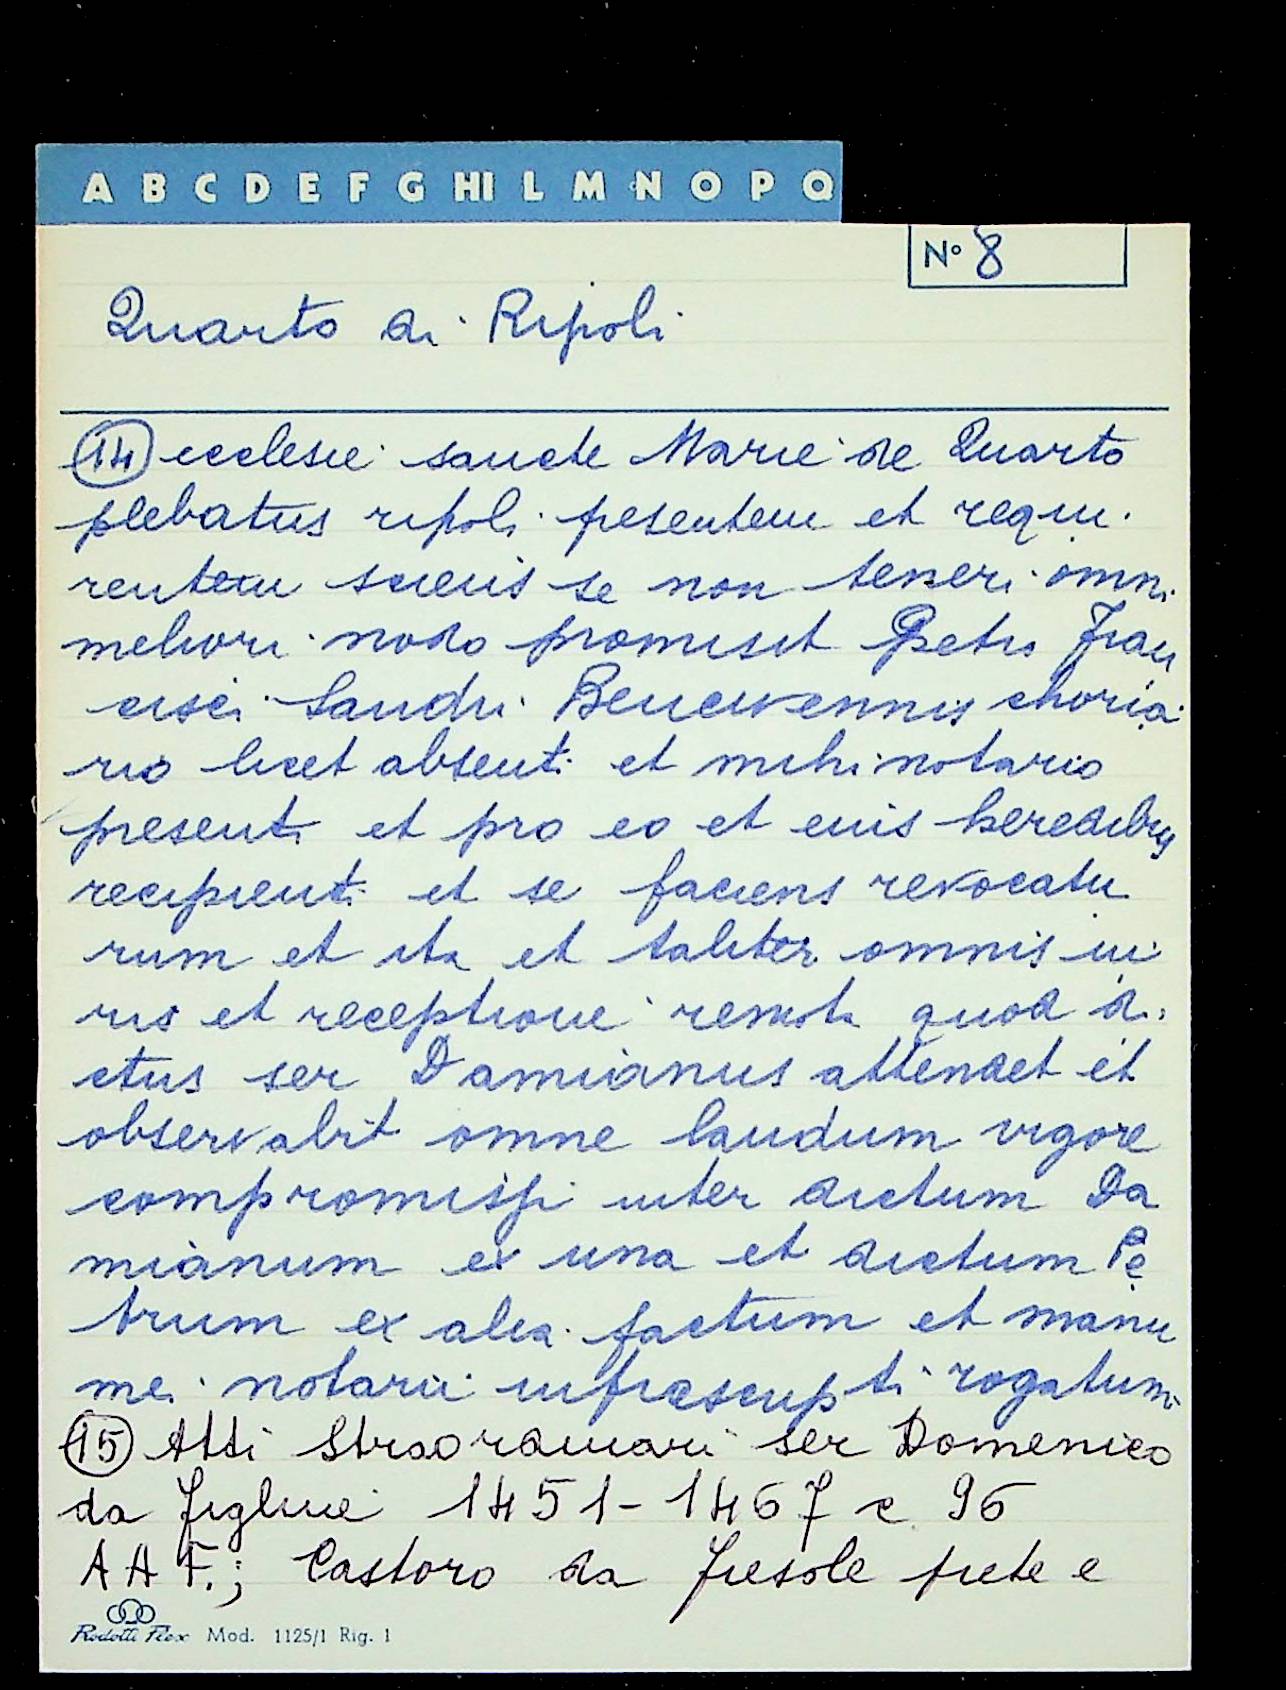 A B C D E F G HI L M N O P Q
N° 8
Quarto di Ripoli
14 ecclesie sancte Marie de Quarto
plebatus ripoli presentem et requi
rentem sciens se non teneri omni
meliori modo promisit Petro Fran
cisci Sandri Bencivennis choria
rio licet absenti et mihi notario
presenti et pro eo et euis heredibus
recipienti et se faciens revocatu
rum et ita et taliter omnis iu
ris et receptione remota quod di
ctus ser Damianus attendet et
observabit omne laudum vigore
compromissi inter dictum Da
mianum ex una et dictum Pe
trum ex alia factum et manu
mei notarii infrascripti rogatum
15 Atti Straordinari ser Domenico
da Figline 1451-1467 c 96
A A F.; Castoro da Fiesole prete e
Rodotti Flex Mod. 1125/1 Rig. 1